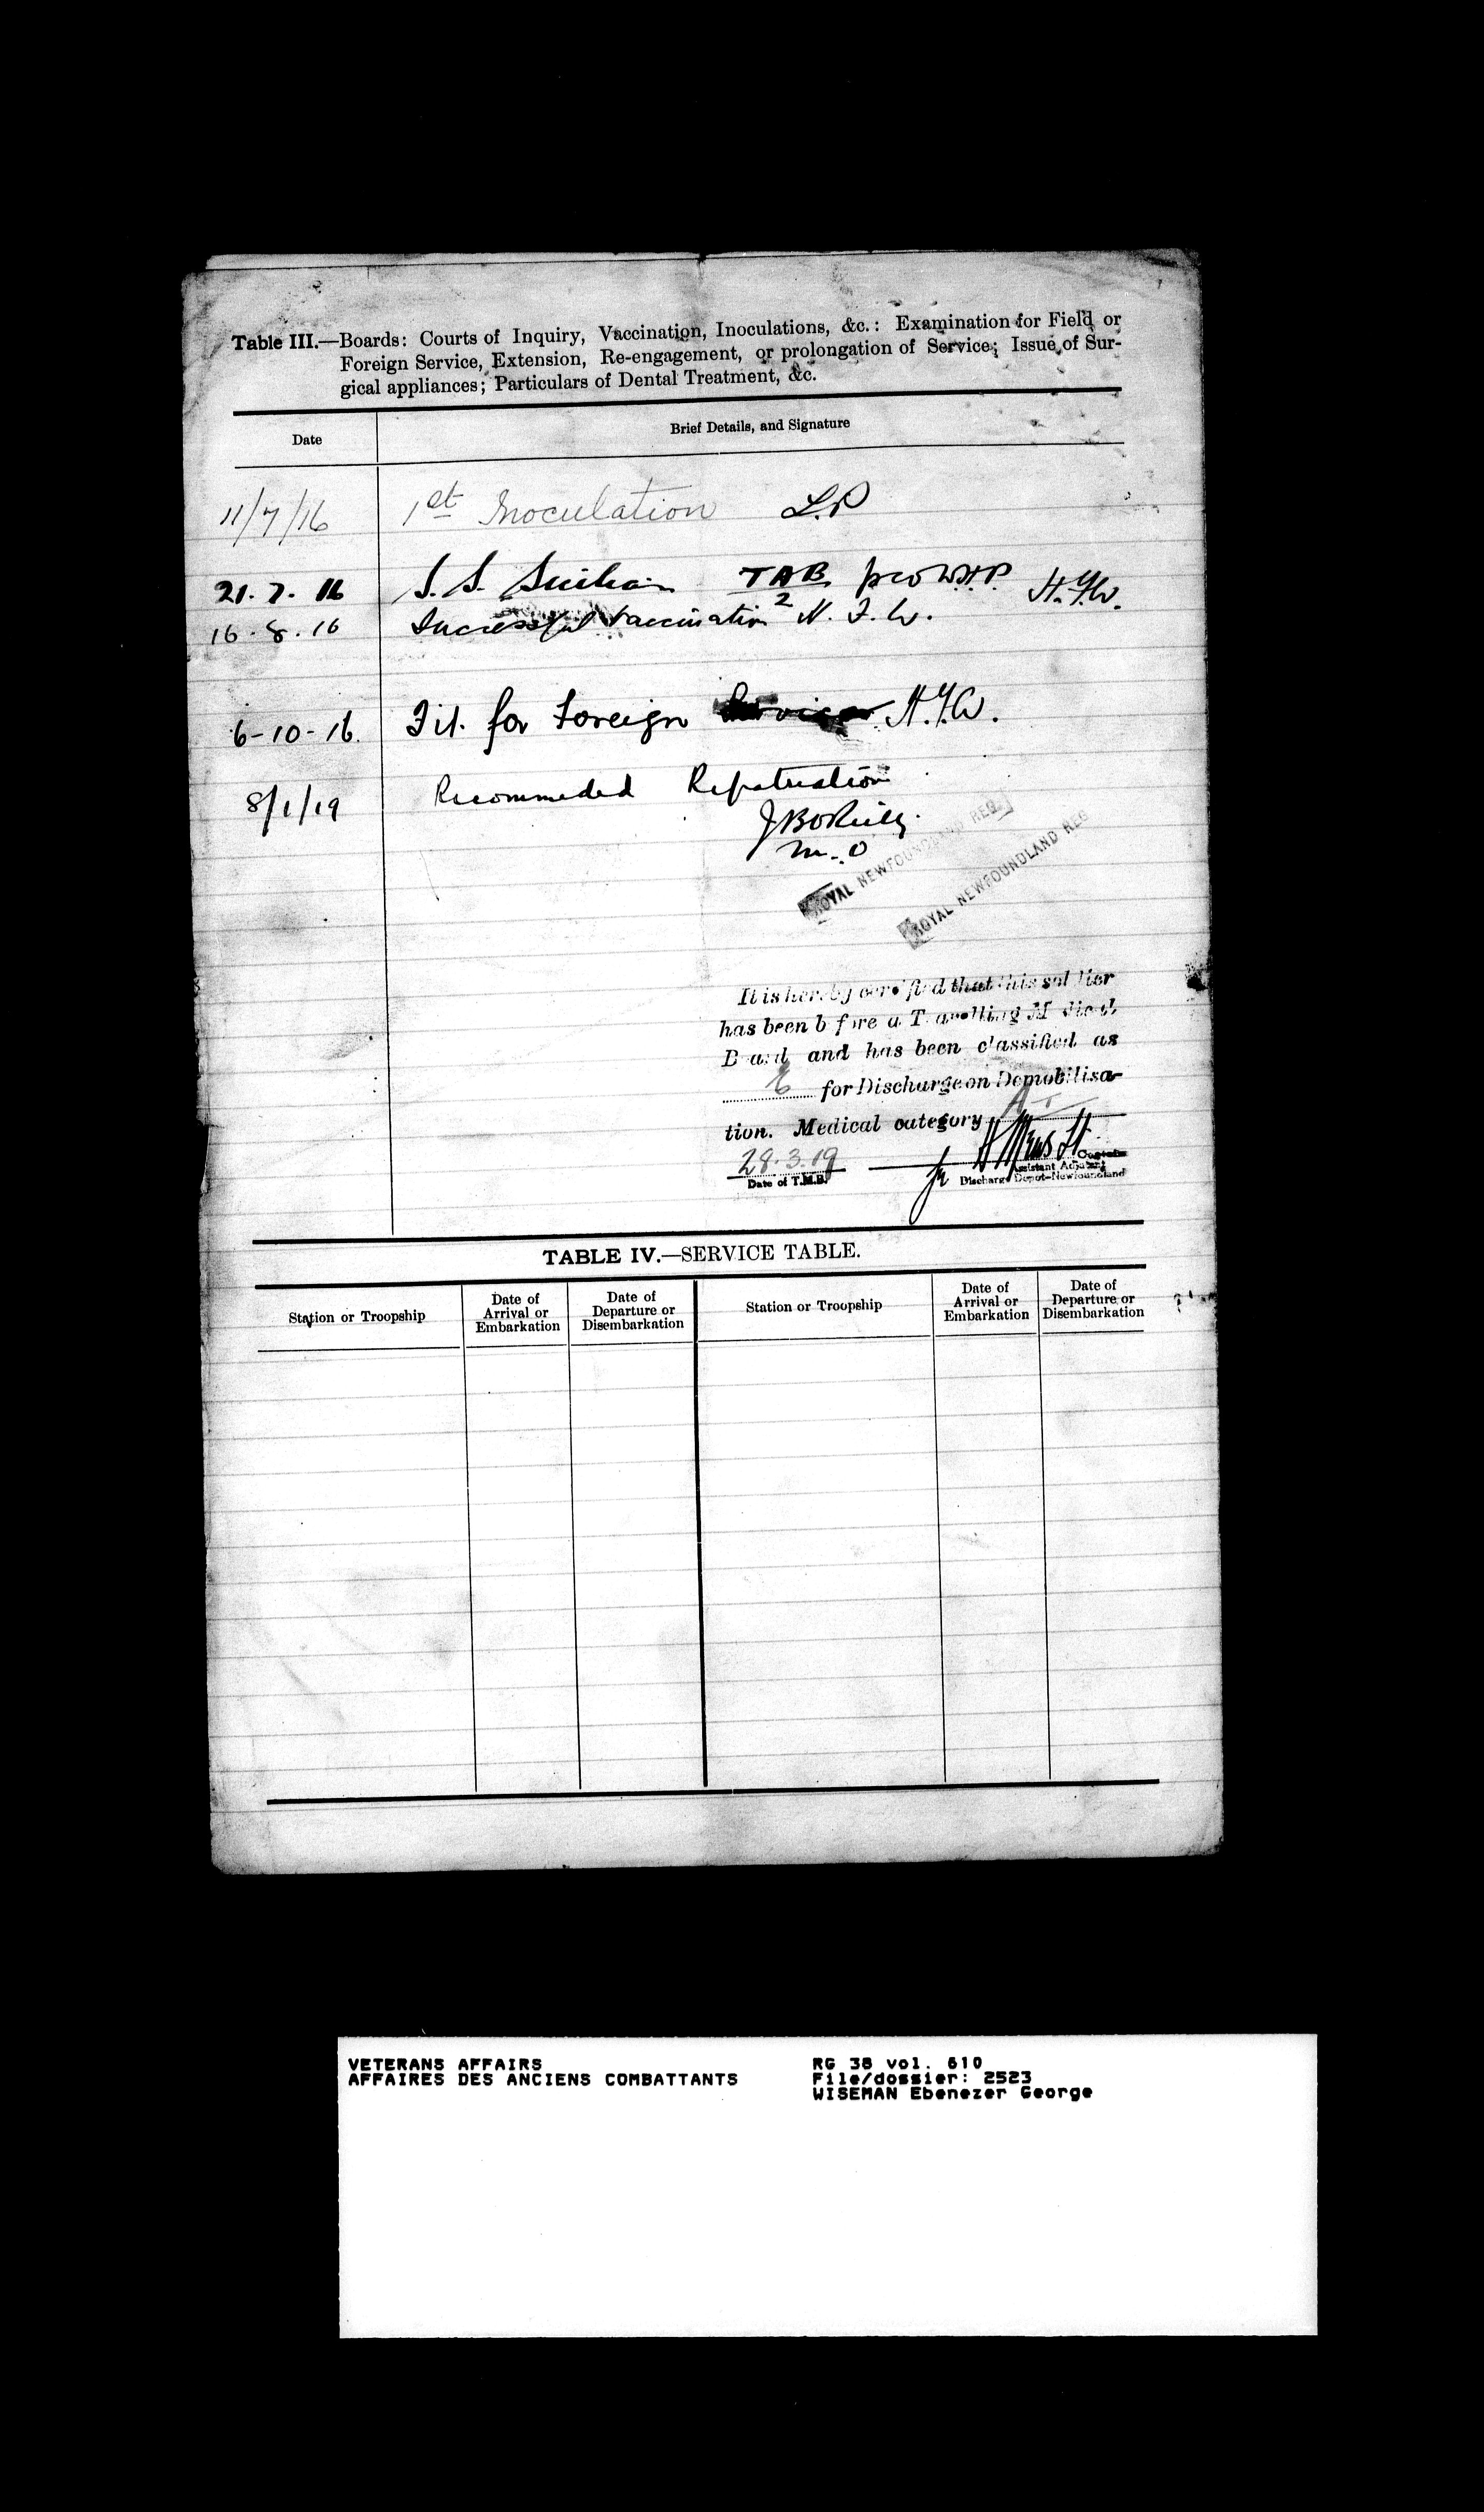 Table III.—Boards: Courts of Inquiry, Vaccination, Inoculations, &c.: Examination for Field or
Foreign Service, Extension, Re-engagement, or prolongation of Service; Issue of Sur-
gical appliances; Particulars of Dental Treatment, &c.
Date Brief Details, and Signature
11/7/16 1st Inoculation L.P
21.7.16 S.S. TAB H.F.W.
16.8.16 Successful Vaccination 2 H.F.W.
6-10-16. Fit for Foreign Service H.F.W.
8/1/19 Recommeded Repatriation
J B O'Reilly
M.O
ROYAL NEWFOUNDLAND REG
ROYAL NEWFOUNDLAND REG
It is hereby certified that this soldier
has been before a Travelling Medical
Board and has been classified as
for Discharge on Demobilisa-
tion. Medical category A I
28.3.19 Captain
Date of T.M.B. for Assistant Adjutant
Discharge Depot-Newfoundland
TABLE IV.—SERVICE TABLE.
Station or Troopship Date of Arrival or Embarkation Date of Departure or Disembarkation Station or Troopship Date of Arrival or Embarkation Date of Departure or Disembarkation
VETERANS AFFAIRS RG 38 vol. 610
AFFAIRES DES ANCIENS COMBATTANTS File/dossier: 2523
WISEMAN Ebenezer George